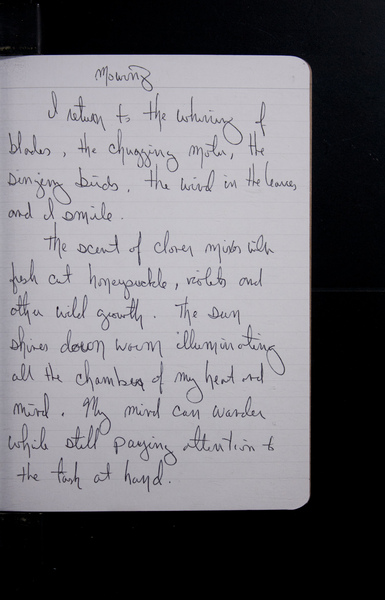 Mowing
I return to the whirring of
blades, the chugging motor, the
singing birds, the wind in the leaves
and I smile.
The scent of clover mixes with
fresh cut honeysuckle, violets and
other wild growth. The sun
shines down warm illuminating
all the chambers of my heart and
mind. My mind can wander
while still paying attention to
the task at hand.